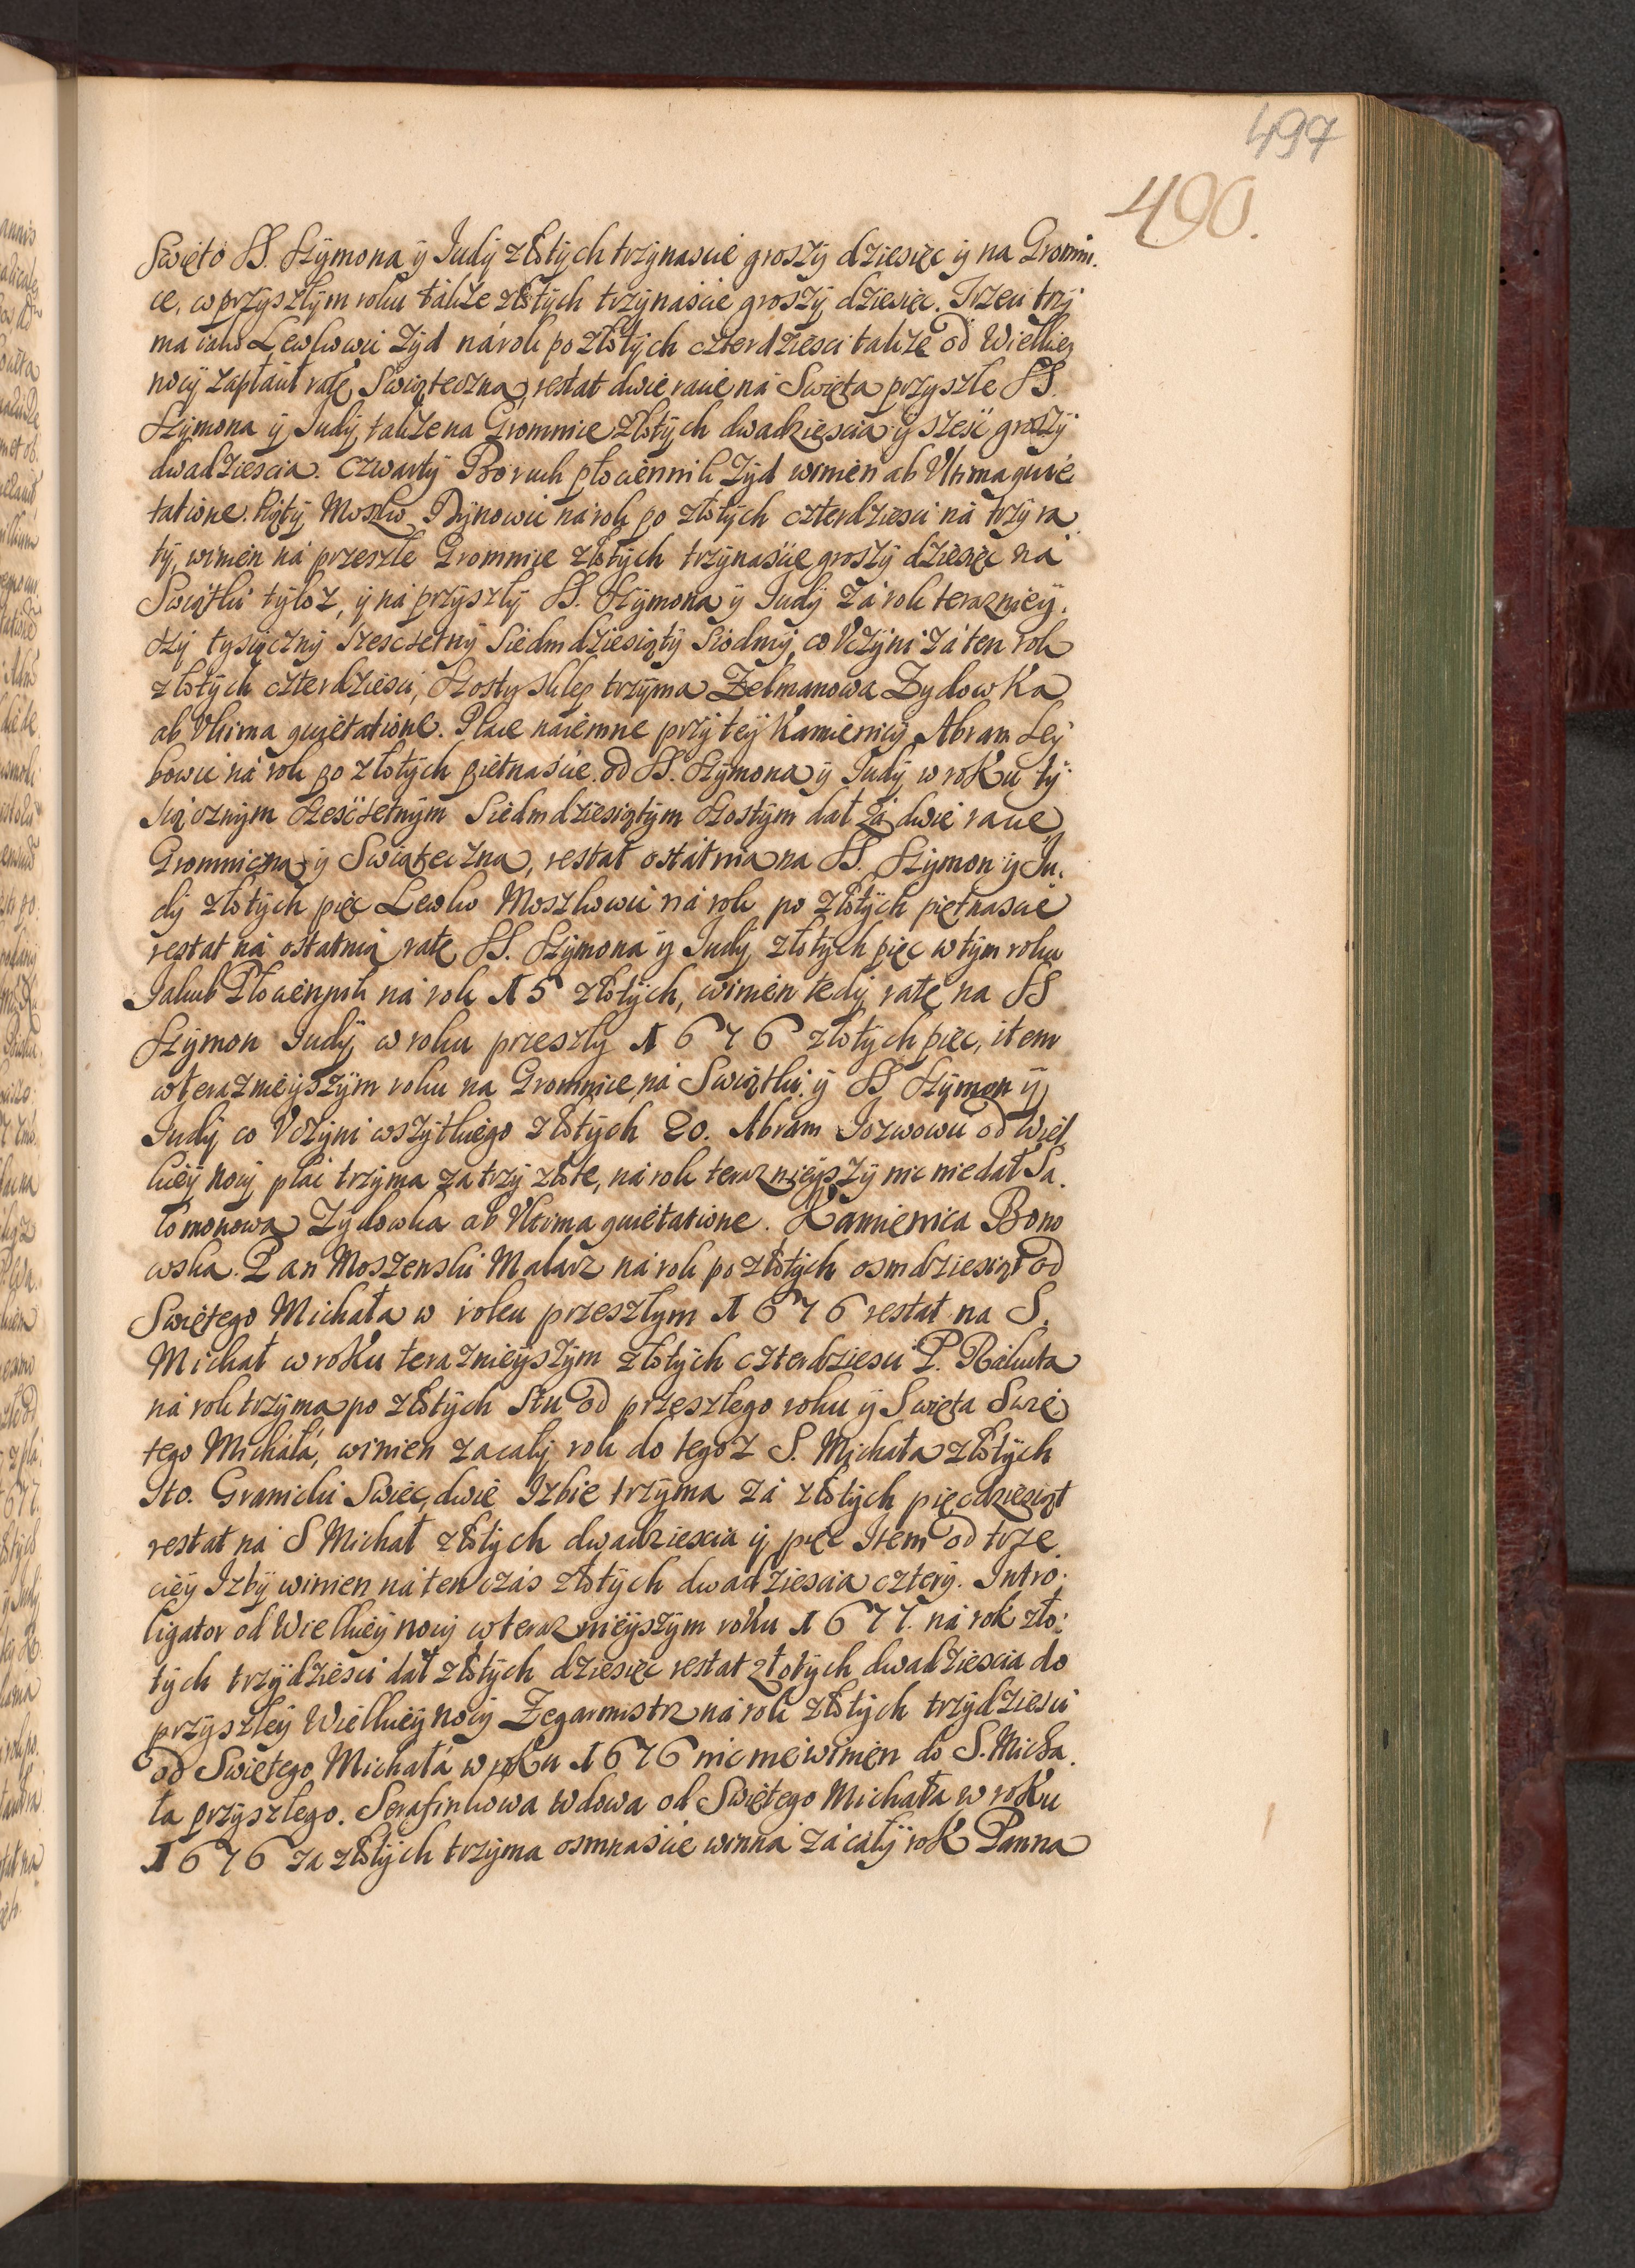 497
490.
Swięto SS. Szymona ÿ Judÿ złotÿch trzÿnascie groszÿ dziesięc ÿ na Gromni.
ce, w przÿszłÿm roku także złotÿch trzÿnaście groszÿ dziesięc. Trzeci trzÿ
ma Lewkowic Zÿd na rok po złotÿch czterdziesci także od Wielkieÿ
nocÿ zapłacił ratę Swiąteczną, restat dwie racie na Swięta przÿszłe SS.
Szÿmona ÿ Judÿ, także na Gromnice złotÿch dwadziescia ÿ sześć groszÿ
dwadziescia. Czwartÿ Boruch płociennik Zÿd winien ab Vltima quie
tatione. Piątÿ Moszko Rÿnowic na rok po złotÿch czterdziesci na trzÿ ra
tÿ, winien na przeszłe Gromnice złotÿch trzÿnaście groszÿ dziesięc na
Swiątki tÿloż, ÿ na przÿszłÿ SS. Szÿmona ÿ Judÿ za rok teraznieÿ.
szÿ tysiącznÿ szescsetnÿ siedmdziesiątÿ siodmÿ, co Vczÿni za ten rok
złotÿch czterdziesci, Szosty sklep trzÿma Zelmanowa Zydowka
ab Vltima quietatione. Place naiemne przÿ teÿ Kamienicÿ Abram Leÿ
bowic na rok po złotÿch piętnaście. od SS. Szÿmona ÿ Judÿ w roku tÿ
siącznÿm szesćsetnÿm siedmdziesiątÿm szostÿm dał za dwie racie
Gromniczną ÿ Swiąteczną, restat ostatnia na SS. Szÿmon ÿ Ju.
dÿ złotÿch pięc Lewko Moszkowic na rok po złotÿch piętnascie
restat na ostatnią ratę SS. Szÿmona ÿ Judÿ złotÿch pięc w tÿm roku
Jakub Płociennik na rok 15 złotÿch, winien tedÿ ratę na SS
Szÿmon Judÿ w roku przeszłÿ 1676 złotÿch pięc, item
w teraznieÿszÿm roku na Gromnice, na Swiątki ÿ SS Szÿmon ÿ
Judÿ co Vczÿni wszÿtkiego złotÿch 20. Abram Jozwowic od Wiel
kieÿ nocÿ plac trzÿma za trzÿ złote, na rok teraznieÿszÿ nic nie dał Sa.
lomonowa Zÿdowka ab Vltima quietatione. Kamienica Bono
wska. Pan Moszenski Malarz na rok po złotÿch osmdziesiąt od
Swiętego Michała w roku przeszłym 1676 restat na S.
Michał w roku teraznieÿszÿm złotÿch czterdziesci P. Rakuta
na rok trzÿma po złotÿch stu od przeszłego roku ÿ Swięta Swię
tego Michała, winien za całÿ rok do tegoż S. Michała złotÿch
sto. Granicki Swiec, dwie Izbie trzÿma za złotÿch pięcdziesiąt
restat na S Michał złotÿch dwadziescia ÿ pięc Item od trze
cieÿ Izbÿ winien na ten czas złotÿch dwadziescia czterÿ. Intro:
ligator od Wielkieÿ nocÿ w teraznieÿszÿm roku 1677. na rok zło:
tÿch trzÿdziesci dał złotÿch dziesięc restat złotÿch dwadziescia do
przÿszłeÿ Wielkieÿ nocÿ Zegarmistrz na rok złotÿch trzÿdziesci
od Swiętego Michała w roku 1676 nic nie winien do S. Micha.
ła przÿszłego. Serafinkowa wdowa od Swiętego Michała w roku
1676 za złotÿch trzÿma osmnaście winna za całÿ rok Panna